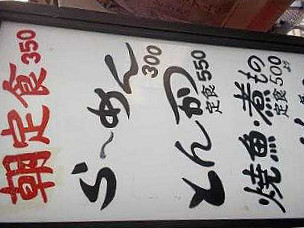 朝定食 350
ら～めん 300
とんかつ定食 550
焼魚・煮もの定食 500より